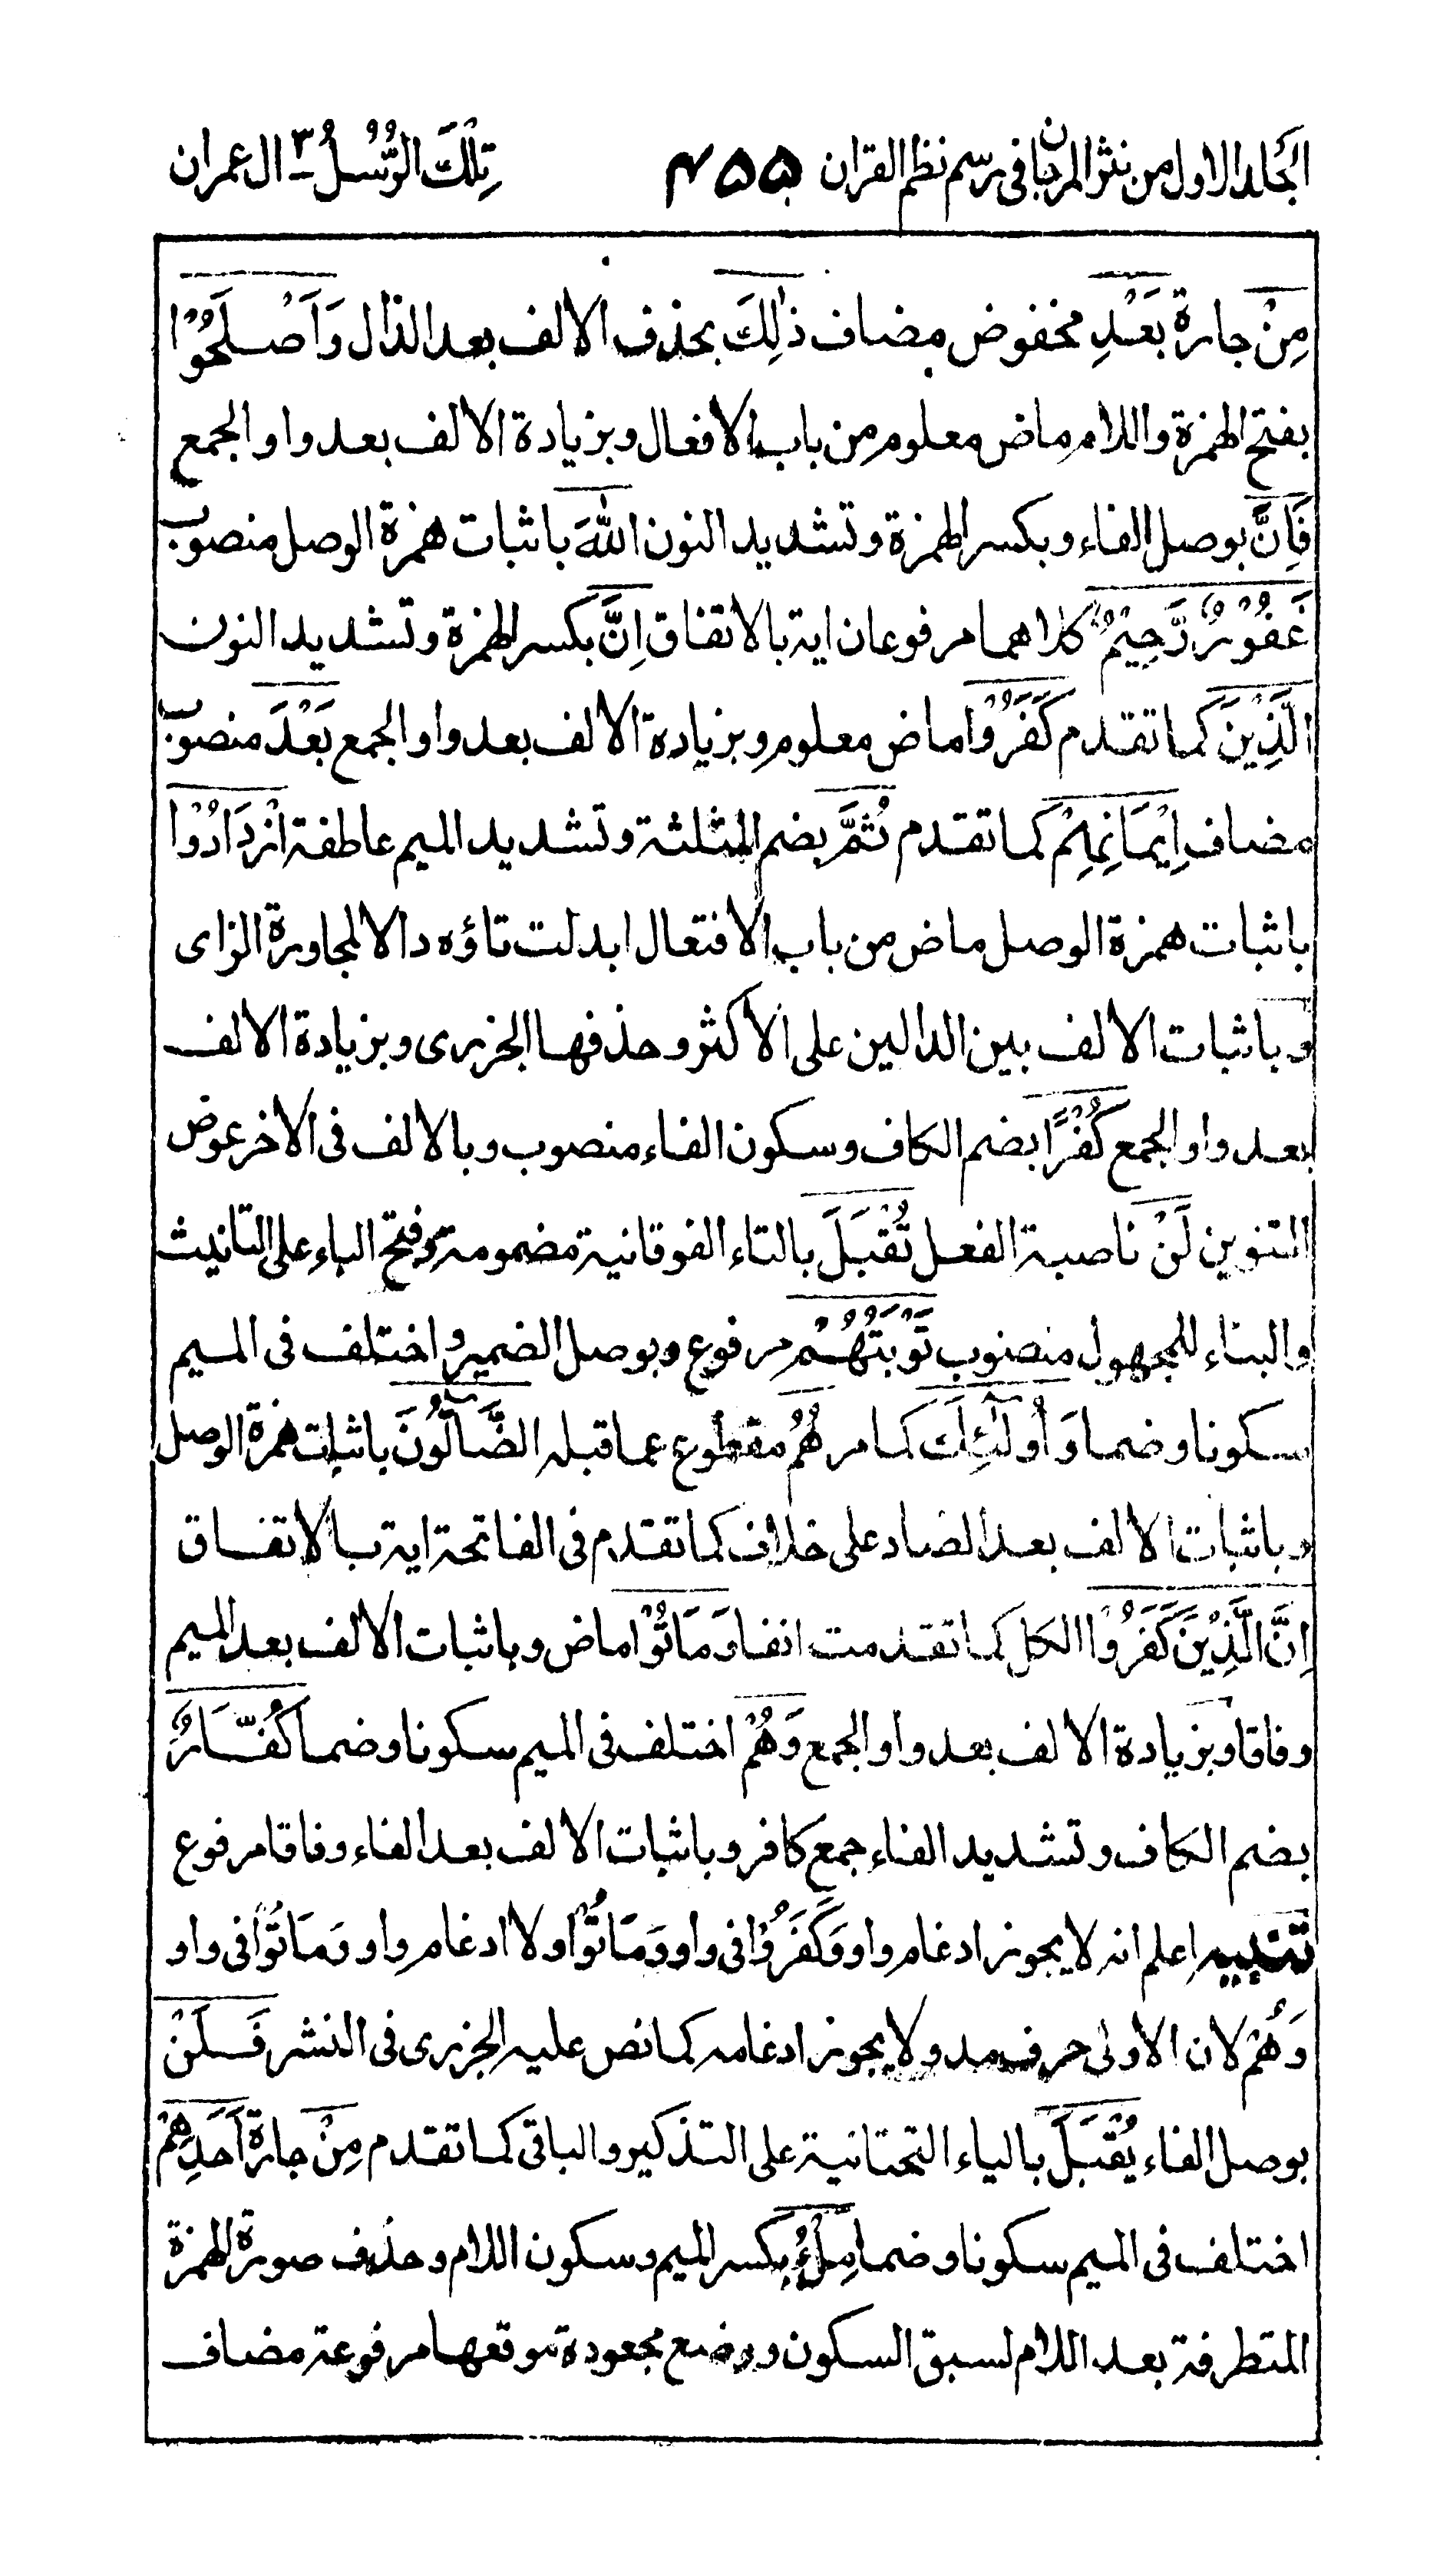 الجلد الاول من نثر المرجان فى رسم نظم القران ٤٥٥ تِلْكَ الرُّسُلُ ٣ ـ ال عمران
مِنْ جارة بَعْدِ مخفوض مضاف ذٰلِكَ بحذف الالف بعد الذال وَاَصْلَحُوْا
بفتح الهمزة واللام ماض معلوم من باب الافعال وبزيادة الالف بعد واو الجمع
فَاِنَّ بوصل الفاء وبكسر الهمزة وتشديد النون اللّٰهَ باثبات همزة الوصل منصوب
غَفُوْرٌ رَّحِيْمٌ كلاهما مرفوعان اية بالاتفاق اِنَّ بكسر الهمزة وتشديد النون
الَّذِيْنَ كما تقدم كَفَرُوْا ماض معلوم وبزيادة الالف بعد واو الجمع بَعْدَ منصوب
مضاف اِيْمَانِهِمْ كما تقدم ثُمَّ بضم المثلثة وتشديد الميم عاطفة ازْدَادُوْا
باثبات همزة الوصل ماض من باب الافتعال ابدلت تاؤه دالا لمجاورة الزاى
وباثبات الالف بين الدالين على الاكثر وحذفها الجزرى وبزيادة الالف
بعد واو الجمع كُفْرًا بضم الكاف وسكون الفاء منصوب وبالالف فى الاخر عوض
التنوين لَنْ ناصبة الفعل تُقْبَلَ بالتاء الفوقانية مضمومة وفتح الباء على التانيث
والبناء للمجهول منصوب تَوْبَتُهُمْ مرفوع وبوصل الضمير واختلف فى الميم
سكونا وضما وَاُولٰٓئِكَ كما مر هُمُ مقطوع عما قبله الضَّآلُّوْنَ باثبات همزة الوصل
وباثبات الالف بعد الضاد على خلاف كما تقدم فى الفاتحة اية بالاتفاق
اِنَّ الَّذِيْنَ كَفَرُوْا الكل كما تقدمت انفا وَمَاتُوْا ماض وباثبات الالف بعد الميم
وفاقا وبزيادة الالف بعد واو الجمع وَهُمْ اختلف فى الميم سكونا وضما كُفَّارٌ
بضم الكاف وتشديد الفاء جمع كافر وباثبات الالف بعد الفاء وفاقا مرفوع
تنبيه اعلم انه لا يجوز ادغام واو وَكَفَرُوْا فى واو وَمَاتُوْا ولا ادغام واو وَمَاتُوْا فى واو
وَهُمْ لان الاولى حرف مد ولا يجوز ادغامه كما نص عليه الجزرى فى النشر فَلَنْ
بوصل الفاء يُقْبَلَ بالياء التحتانية على التذكير والباقى كما تقدم مِنْ جارة اَحَدِهِمْ
اختلف فى الميم سكونا وضما مِلْءُ بكسر الميم وسكون اللام وحذف صورة الهمزة
المتطرفة بعد اللام لسبق السكون ووضع مجعودة موقعها مرفوعة مضاف